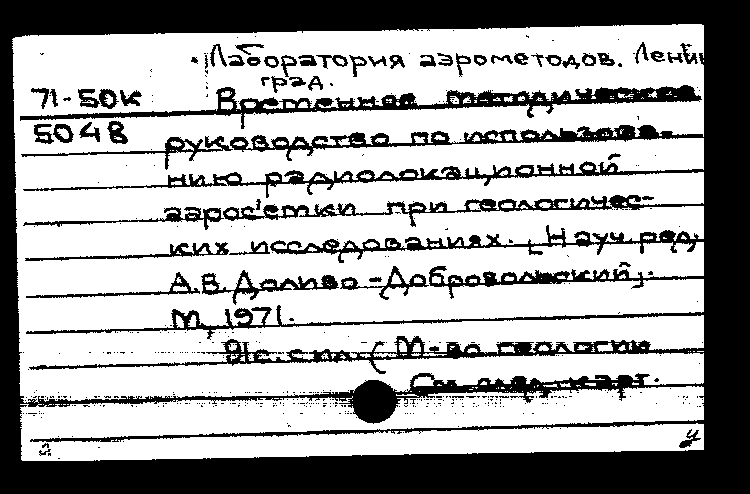 Лаборатория аэрометодов. Ленин
град.
71-50К Временное методическое
5048 руководство по использова-
нию радиолокационной
аэрос'емки при геологичес-
ких исследованиях. [Науч. ред.
А.В. Доливо-Добровольский].
М., 1971.
91с. с ил. (М-во геологии
См. след. карт.